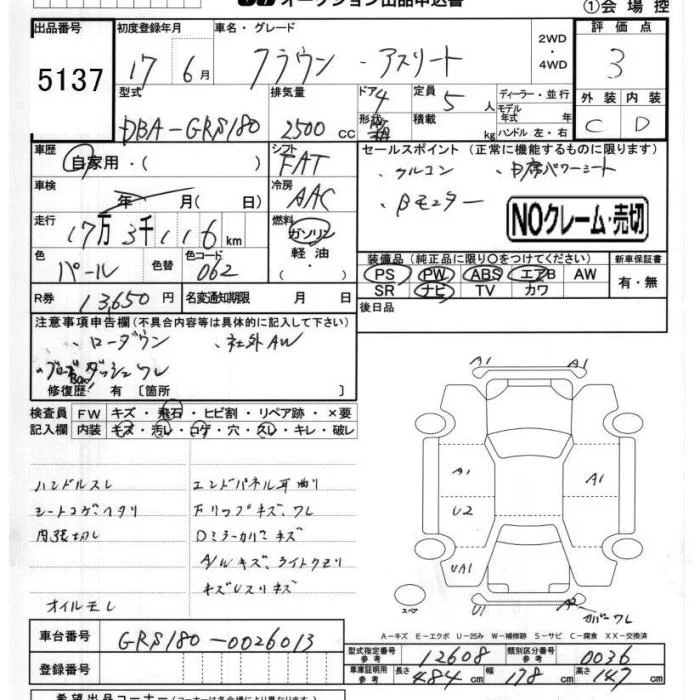 オークション出品申込書
①会場控
出品番号 初度登録年月 車名・グレード 評価点
5137 17 6月 クラウン・アスリート 2WD・4WD 3
型式 排気量 ドア 4 定員 5人 ディーラー・並行 外装 内装
DBA-GRS180 2500cc 形状 箱 積載 kg モデル年式 年 ハンドル 左・右 C D
車歴 自家用・( ) シフト FAT セールスポイント (正常に機能するものに限ります)
車検 年 月( 日) 冷房 AAC ・クルコン ・D席パワーシート
・Bモニター
走行 17万3千116km 燃料 ガソリン 軽油 ・( ) NOクレーム・売切
色 パール 色替 色コード 062
装備品 (純正品に限り○をつけてください) 新車保証書
PS PW ABS エアB AW 有・無
SR ナビ TV カワ
R券 13,650円 名変通知期限 月 日 後日品
注意事項申告欄(不具合内容等は具体的に記入して下さい)
・ローダウン ・社外AW
ダッシュワレ
修復歴 有 [箇所
検査員 FW キズ・飛石・ヒビ割・リペア跡・×要
記入欄 内装 キズ・汚レ・コゲ・穴・スレ・キレ・破レ
ハンドルスレ エンドパネル耳曲り
シートコゲヘタリ Fリップキズ、ワレ
内張切レ Dミラーカバーキズ
A/Wキズ、ライトクモリ
キズUスリキズ
オイルモレ
A1 A1
A1 A1
U2
UA1
スペア U1 カバーワレ
A-キズ E-エクボ U-凹み W-補修跡 S-サビ C-腐食 XX-交換済
車台番号 GRS180-0026013
型式指定番号 参考 12608 類別区分番号 参考 0036
登録番号 車庫証明用 参考 長さ 484cm 幅 178cm 高さ 147cm
希望出品コーナー